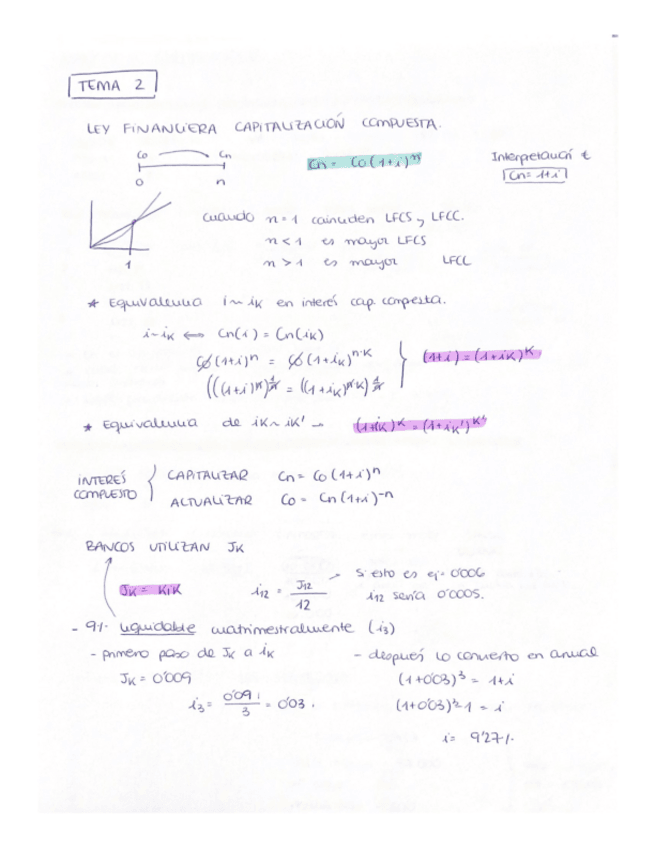 TEMA 2
LEY FINANCIERA CAPITALIZACIÓN COMPUESTA.
Co Cn
0 n
Cn = Co(1+i)^n
Interpretación t
Cn = 1+i
1
Cuando n = 1 coinciden LFCS y LFCC.
n < 1 es mayor LFCS
n > 1 es mayor LFCC
* Equivalencia i ~ iK en interés cap. compesta.
i ~ iK ⟺ Cn(i) = Cn(iK)
Co(1+i)^n = Co(1+iK)^n·K
(((1+i)^n)^1/n = ((1+iK)^n·K)^1/n
(1+i) = (1+iK)^K
* Equivalencia de iK ~ iK' → (1+iK)^K = (1+iK')^K'
INTERÉS COMPUESTO
CAPITALIZAR Cn = Co(1+i)^n
ACTUALIZAR Co = Cn(1+i)^-n
BANCOS UTILIZAN JK
JK = K·iK
i12 = J12/12 → Si esto es ej = 0'006
i12 sería 0'0005.
- 9% liquidable cuatrimestralmente (i3)
- primero paso de JK a iK
JK = 0'009
i3 = 0'09/3 = 0'03.
- después lo convierto en anual
(1+0'03)^3 = 1+i
(1+0'03)^3-1 = i
i = 9'27%.